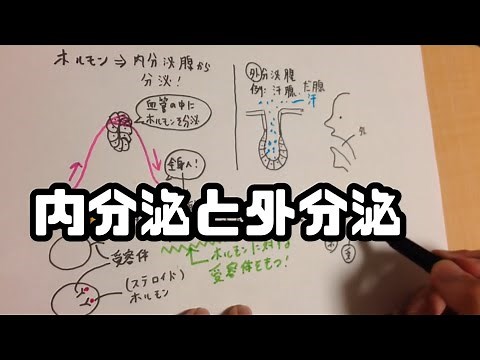 ホルモン⇒内分泌腺から
分泌！
血管の中に
ホルモンを分泌
全身へ！
外分泌腺
例：汗腺、だ腺
汗
内分泌と外分泌
受容体
ホルモンに対する
受容体をもつ！
(ステロイド)
ホルモン